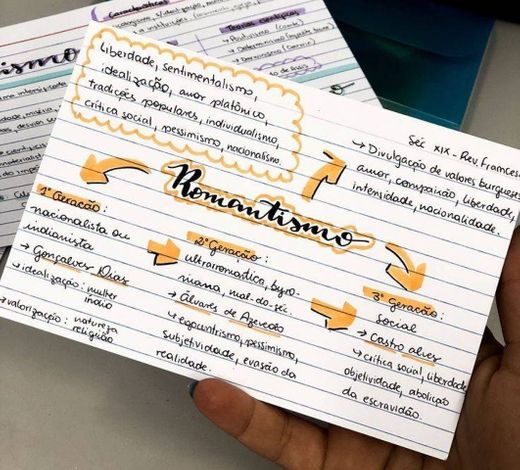 Características
Teorias científicas
→ Positivismo (Comte)
→ Determinismo
→ Darwinismo (Darwin)
Liberdade, sentimentalismo,
idealização, amor platônico,
tradições populares, individualismo,
crítica social, pessimismo, nacionalismo.
Séc XIX - Rev. Francesa
→ Divulgação de valores burgueses
amor, compaixão, liberdade,
intensidade, nacionalidade.
Romantismo
1ª Geração:
nacionalista ou
indianista
→ Gonçalves Dias
→ idealização: mulher
índio
→ valorização: natureza
religião
2ª Geração:
ultrarromântica, byro-
niana, mal-do-séc.
→ Álvares de Azevedo
→ egocentrismo, pessimismo,
subjetividade, evasão da
realidade.
3ª Geração:
social
→ Castro Alves
→ crítica social, liberdade
objetividade, abolição
da escravidão.